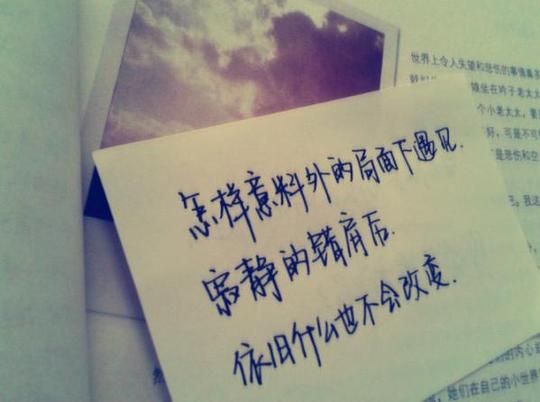 世界上令人失望和悲伤的事情真多
娘坐在吟子老太太
个小老太太，要
好，可是不可
是悲伤和空
怎样意料外的局面下遇见.
寂静的错肩后.
依旧什么也不会改变.
的内心
她们在自己的小世界